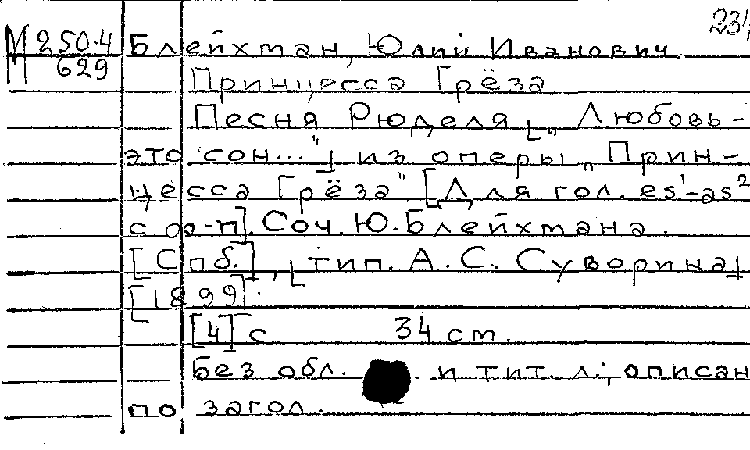 234
М 250.4
629
Блейхман, Юлий Иванович.
Принцесса Грёза
Песня Рюделя [„Любовь-
это сон..."] из оперы „Прин-
цесса Грёза" [Для гол. es¹-as²
с ф-п]. Соч. Ю. Блейхмана.
[Спб.], [тип. А. С. Суворина]
[1899].
[4] с 34 см.
Без обл. и тит. л.; описан
по загол.